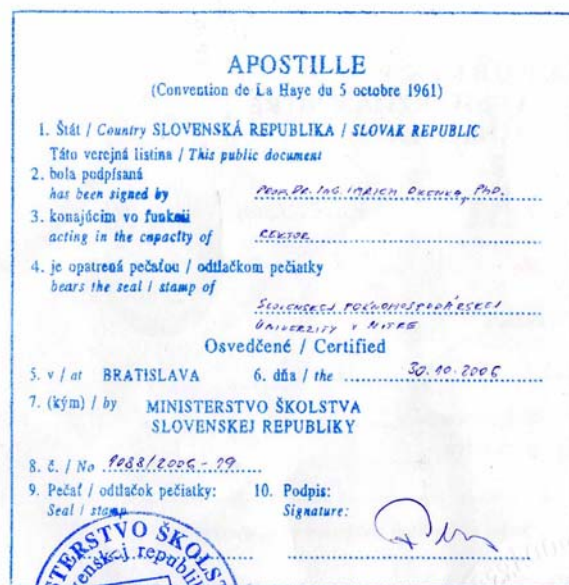 APOSTILLE
(Convention de La Haye du 5 octobre 1961)
1. Štát / Country SLOVENSKÁ REPUBLIKA / SLOVAK REPUBLIC
Táto verejná listina / This public document
2. bola podpísaná
has been signed by PROF. DR. ING. IMRICH OKENKA, PhD.
3. konajúcim vo funkcii
acting in the capacity of REKTOR
4. je opatrená pečaťou / odtlačkom pečiatky
bears the seal / stamp of
SLOVENSKEJ POĽNOHOSPODÁRSKEJ
UNIVERZITY V NITRE
Osvedčené / Certified
5. v / at BRATISLAVA 6. dňa / the 30.10.2006
7. (kým) / by MINISTERSTVO ŠKOLSTVA
SLOVENSKEJ REPUBLIKY
8. č. / No 9088/2006-19
9. Pečať / odtlačok pečiatky: 10. Podpis:
Seal / stamp Signature:
TERSTVO ŠKOLS
enskej republi